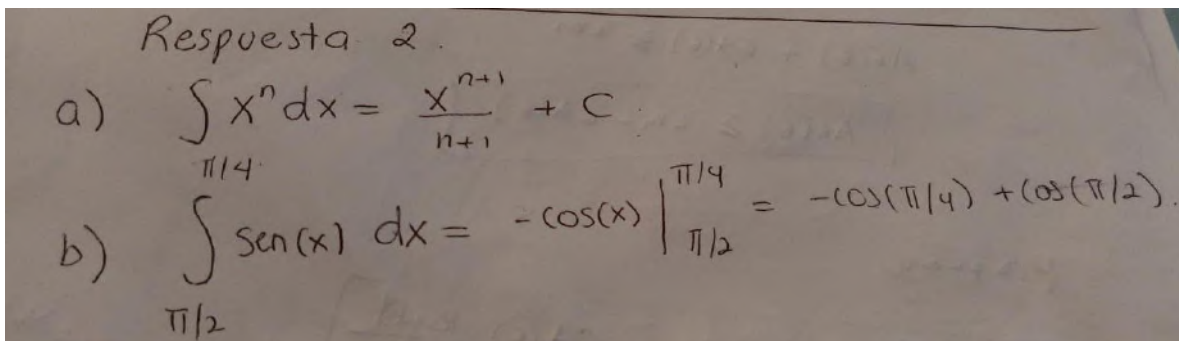 Respuesta 2.
a) ∫ xⁿ dx = xⁿ⁺¹/n+1 + C.
b) ∫_{π/2}^{π/4} sen(x) dx = -cos(x) |_{π/2}^{π/4} = -cos(π/4) + cos(π/2).